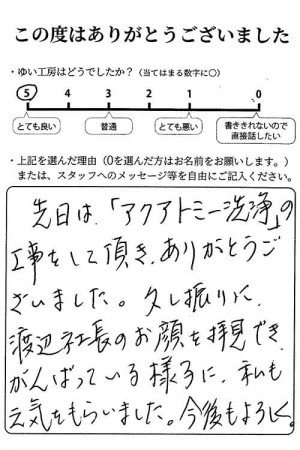 この度はありがとうございました
・ゆい工房はどうでしたか？（当てはまる数字に○）
5 4 3 2 1 0
とても良い 普通 とても悪い 書ききれないので直接話したい
・上記を選んだ理由（0を選んだ方はお名前をお願いします。）
または、スタッフへのメッセージ等を自由にご記入ください。
先日は、「アクアトミー洗浄」の
工事をして頂き、ありがとうご
ざいました。久し振りに、
渡辺社長のお顔を拝見でき、
がんばっている様子に、私も
元気をもらいました。今後もよろしく。